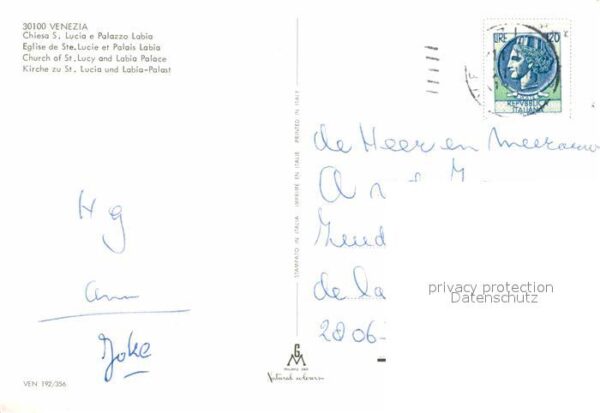 30100 VENEZIA
Chiesa S. Lucia e Palazzo Labia
Eglise de Ste. Lucie et Palais Labia
Church of St. Lucy and Labia Palace
Kirche zu St. Lucia und Labia-Palast
LIRE 120
REPUBBLICA
ITALIANA
STAMPATO IN ITALIA IMPRIME EN ITALIE PRINTED IN ITALY
de Heer en
de la
2806-
Hg
Ann
Joke
privacy protection
Datenschutz
GM
Natural colours
VEN 192/356